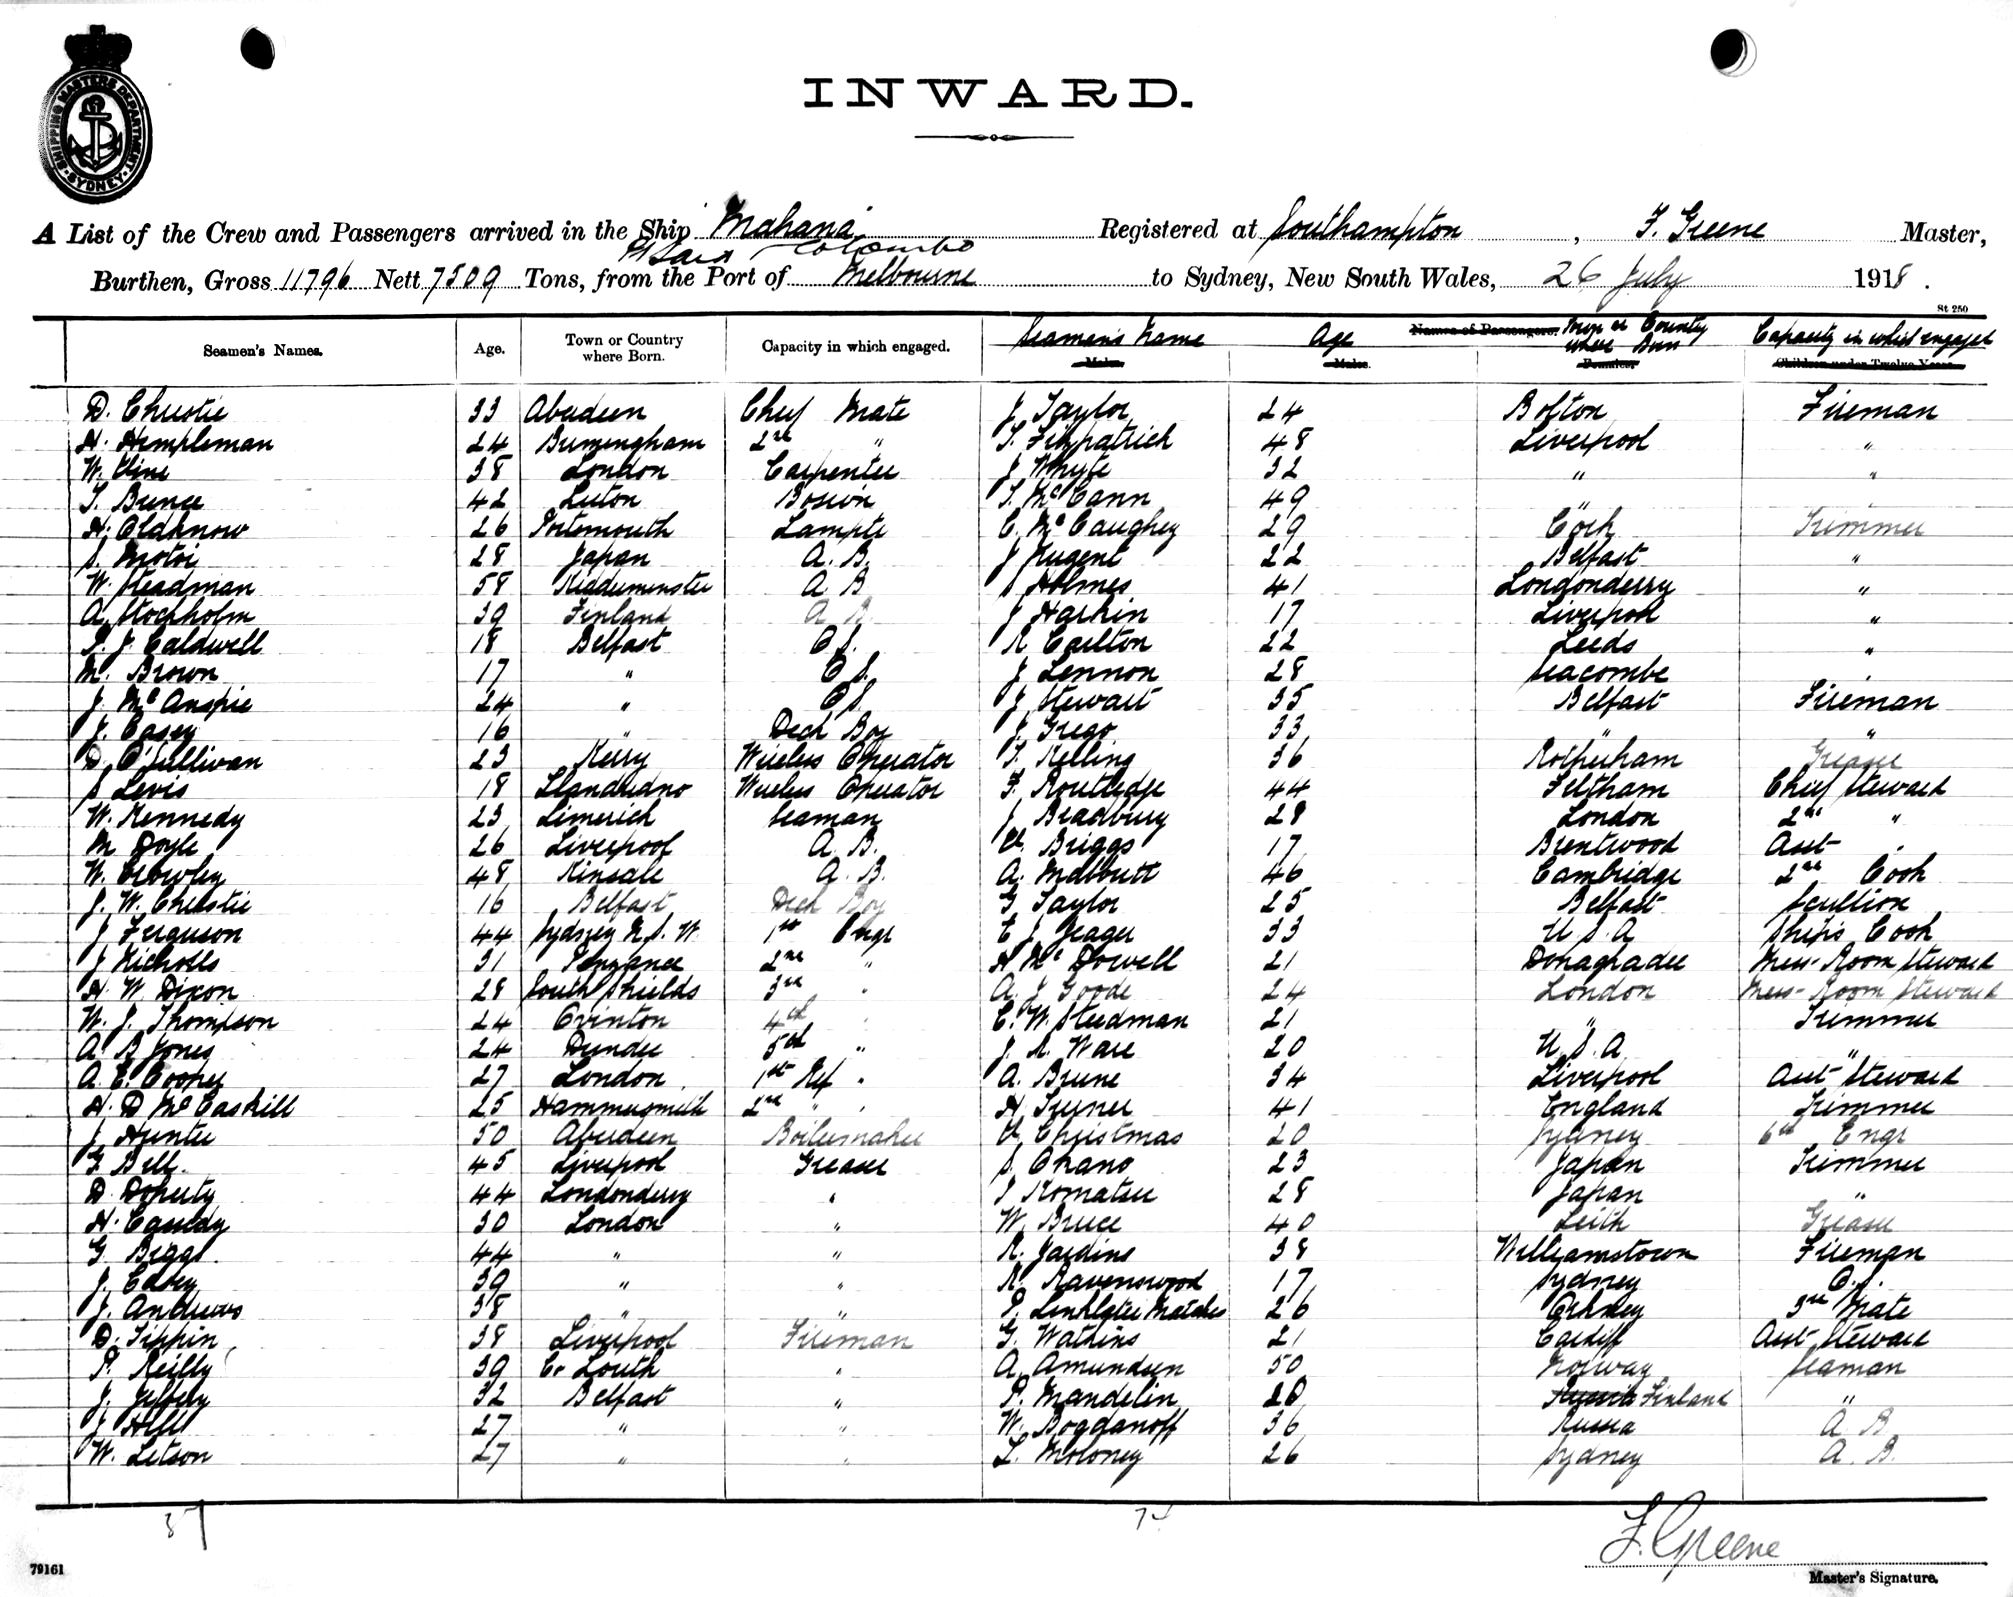 SHIPPING MASTERS DEPARTMENT SYDNEY
INWARD.
A List of the Crew and Passengers arrived in the Ship Mahana Registered at Southampton, F. Greene Master,
Pt Said Colombo
Burthen, Gross 11796 Nett 7509 Tons, from the Port of Melbourne to Sydney, New South Wales, 26 July 1918.
St 250
Seamen's Names. Age. Town or Country where Born. Capacity in which engaged. Seamen's Name Age Names of Passengers. Town or Country where Born Capacity in which engaged
Males. Males. Females. Children under Twelve Years.
D. Christie 33 Aberdeen Chief Mate J Taylor 24 Bolton Fireman
H. Hempleman 24 Birmingham 2nd " T. Fitzpatrick 48 Liverpool "
W. Vine 38 London Carpenter J Whyte 32 " "
T. Bunce 42 Luton Bosun T. McCann 49 "
H. Oldknow 26 Portsmouth Lamps C. McCaughey 29 Cork Trimmer
S. Motoi 28 Japan A. B. J Nugent 22 Belfast "
W. Steadman 58 Kidderminster A B S Holmes 41 Londonderry "
A. Stockholm 39 Finland A B. J Harkin 17 Liverpool "
T. J. Caldwell 18 Belfast O S. R Carlton 22 Leeds "
M. Brown 17 " O S. J Lennon 28 Seacombe "
J. McAnspie 24 " O S. J Stewart 35 Belfast Fireman
J. Casey 16 " Deck Boy J Grego 33 " "
D. O'Sullivan 23 Kerry Wireless Operator T. Kelling 36 Rotherham Greaser
S Levis 18 Llandudno Wireless Operator F. Routledge 44 Feltham Chief Steward
W. Kennedy 23 Limerick Seaman J Bradbury 28 London 2nd "
M Doyle 26 Liverpool A. B. V. Briggs 17 Brentwood Asst "
W. Crowley 48 Kinsale A. B. A. Melbutt 46 Cambridge 2nd Cook
J. W. Christie 16 Belfast Deck Boy G Taylor 25 Belfast Scullion
J Ferguson 44 Sydney N. S. W. 1st Engr E J Yeager 33 U S. A Ships Cook
J Nicholls 31 Penzance 2nd " H McDowell 21 Donaghadee Mess-Room Steward
H. W. Dixon 28 South Shields 3rd " A. J Goode 24 London Mess-Room Steward
W. J. Thompson 24 Ovinton 4th " C. W. Steedman 21 " Trimmer
A B Jones 24 Dundee 5th " J. R. Ware 20 U. S. A "
A. E. Cooper 27 London 1st Ref " A. Brune 34 Liverpool Asst Steward
H. D McCaskill 25 Hammersmith 2nd " " H. Turner 41 England Trimmer
J Hunter 50 Aberdeen Boilermaker V. Christmas 20 Sydney 6th Engr
G Bell. 45 Liverpool Greaser S. Ohano 23 Japan Trimmer
D. Doherty 44 Londonderry " S Komatsu 28 Japan "
H. Cassidy 30 London " W. Bruce 40 Leith Greaser
G. Biggs 44 " " R. Jardine 38 Williamstown Fireman
J. Casey 39 " " R. Ravenswood 17 Sydney O. S.
J. Andrews 38 " " P. Matches 26 Orkney 3rd Mate
D. Tippin 38 Liverpool Fireman G. Watkins 21 Cardiff Asst Steward
P. Reilly 39 Co Louth " A. Amundsen 50 Norway Seaman
J. Jeffery 32 Belfast " P. Mandelin 20 Russia Finland "
J Hill 27 " " W. Bogdanoff 36 Russia A B
W. Letson 27 " " L. Moloney 26 Sydney A. B.
37 74
F. Greene
79161
Master's Signature.